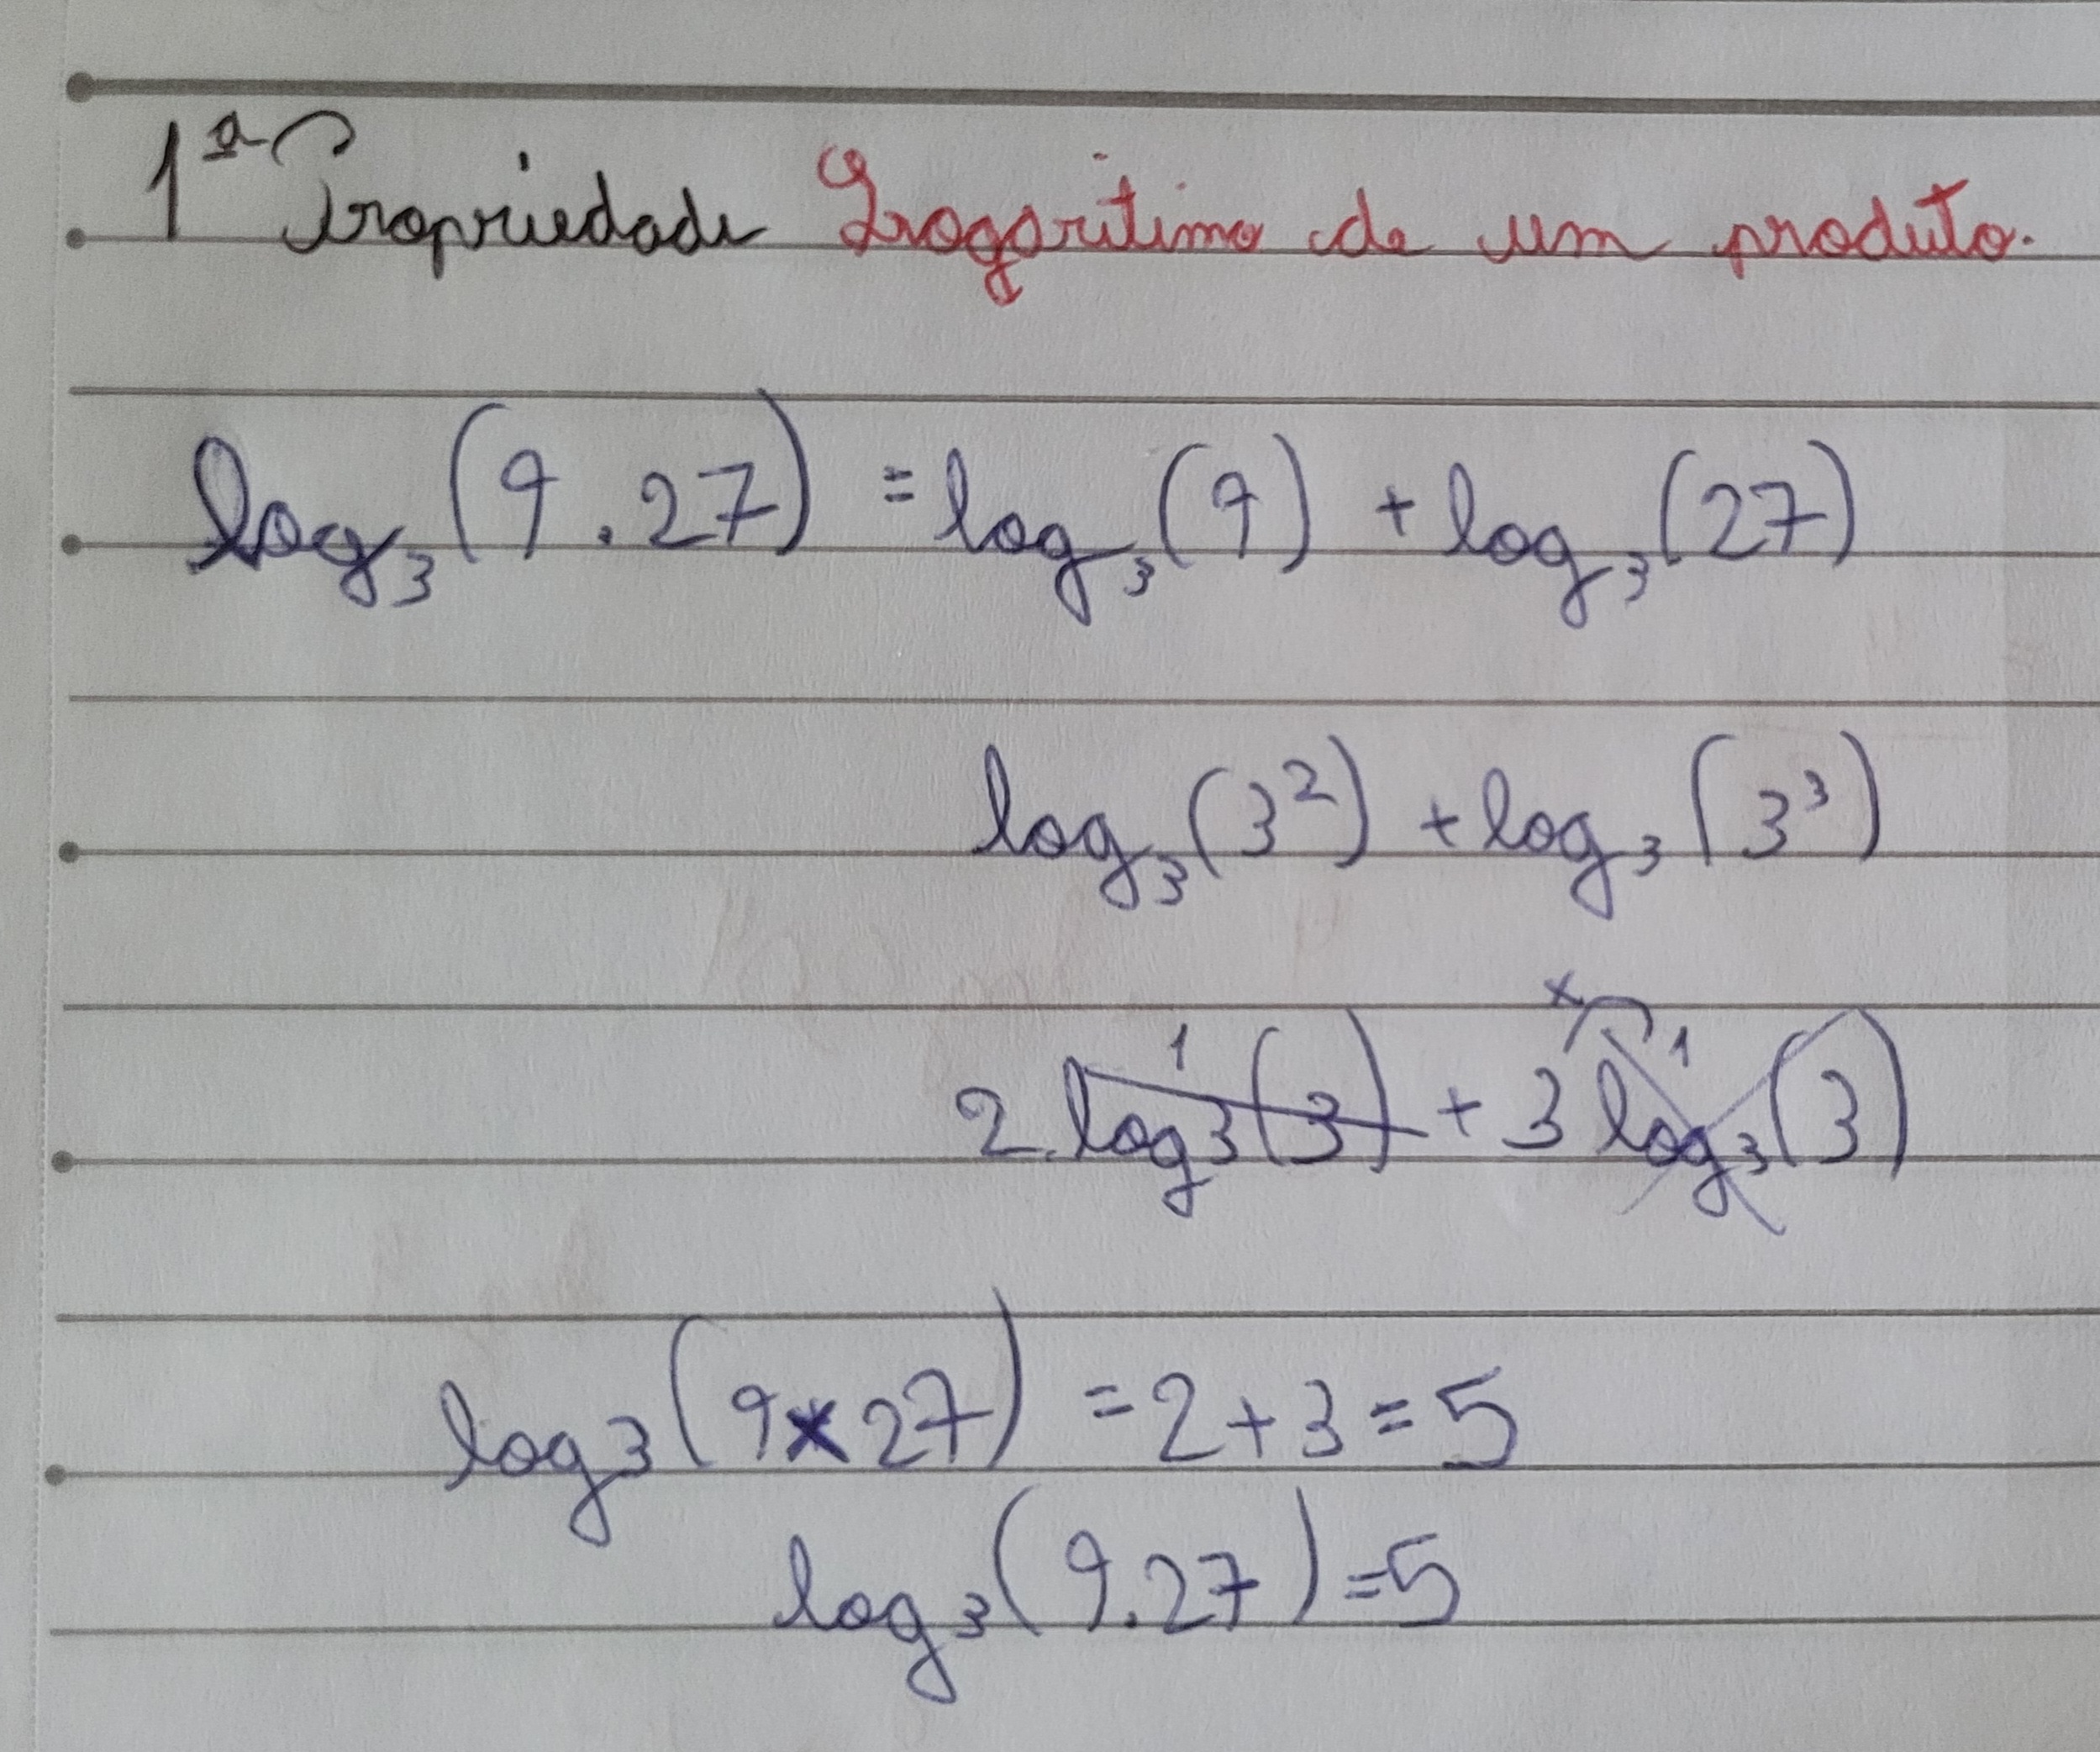 1ª Propriedade Logaritimo de um produto.
log₃(9.27) = log₃(9) + log₃(27)
log₃(3²) + log₃(3³)
x
1 1
2.log₃(3) + 3 log₃(3)
log₃(9x27) = 2+3 = 5
log₃(9.27) = 5